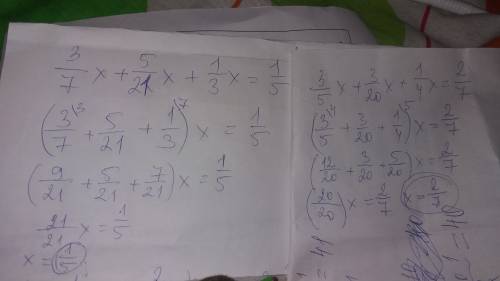 3/7 x + 5/21 x + 1/3 x = 1/5
(3/7 \3 + 5/21 + 1/3 \7) x = 1/5
(9/21 + 5/21 + 7/21) x = 1/5
21/21 x = 1/5
x = 1/5
3/5 x + 3/20 x + 1/4 x = 2/7
(3/5 \4 + 3/20 + 1/4 \5) x = 2/7
(12/20 + 3/20 + 5/20) x = 2/7
(20/20) x = 2/7
x = 2/7